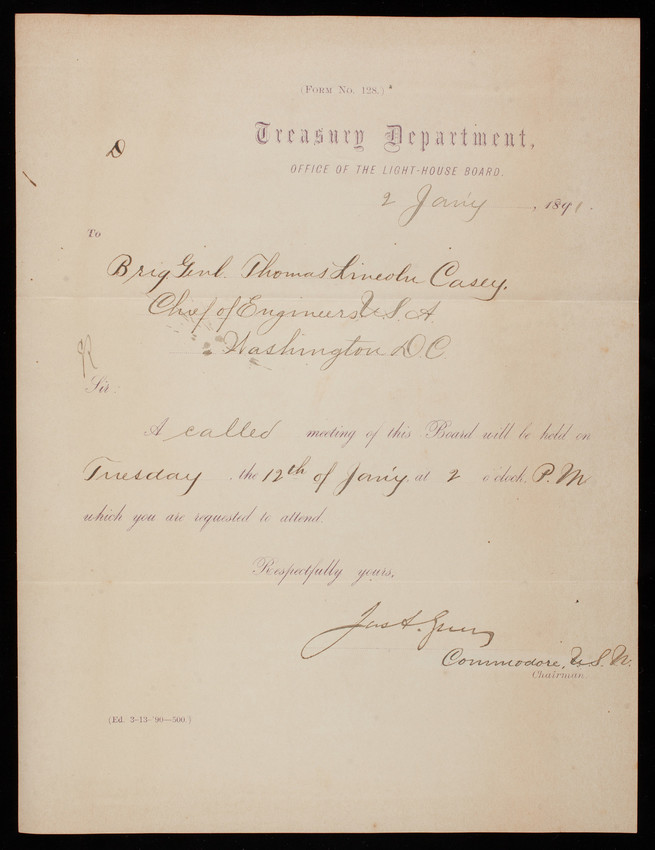 (FORM NO. 128.)
Treasury Department,
OFFICE OF THE LIGHT-HOUSE BOARD.
2 Jan'y, 1891.
To
Brig Genl. Thomas Lincoln Casey,
Chief of Engineers, U.S.A.
Washington D.C.
Sir:
A called meeting of this Board will be held on
Tuesday, the 12th of Jan'y, at 2 o'clock, P.M.
which you are requested to attend.
Respectfully yours,
Jas A. Greer
Commodore, U.S.N.
Chairman.
(Ed. 3-13-'90—500.)